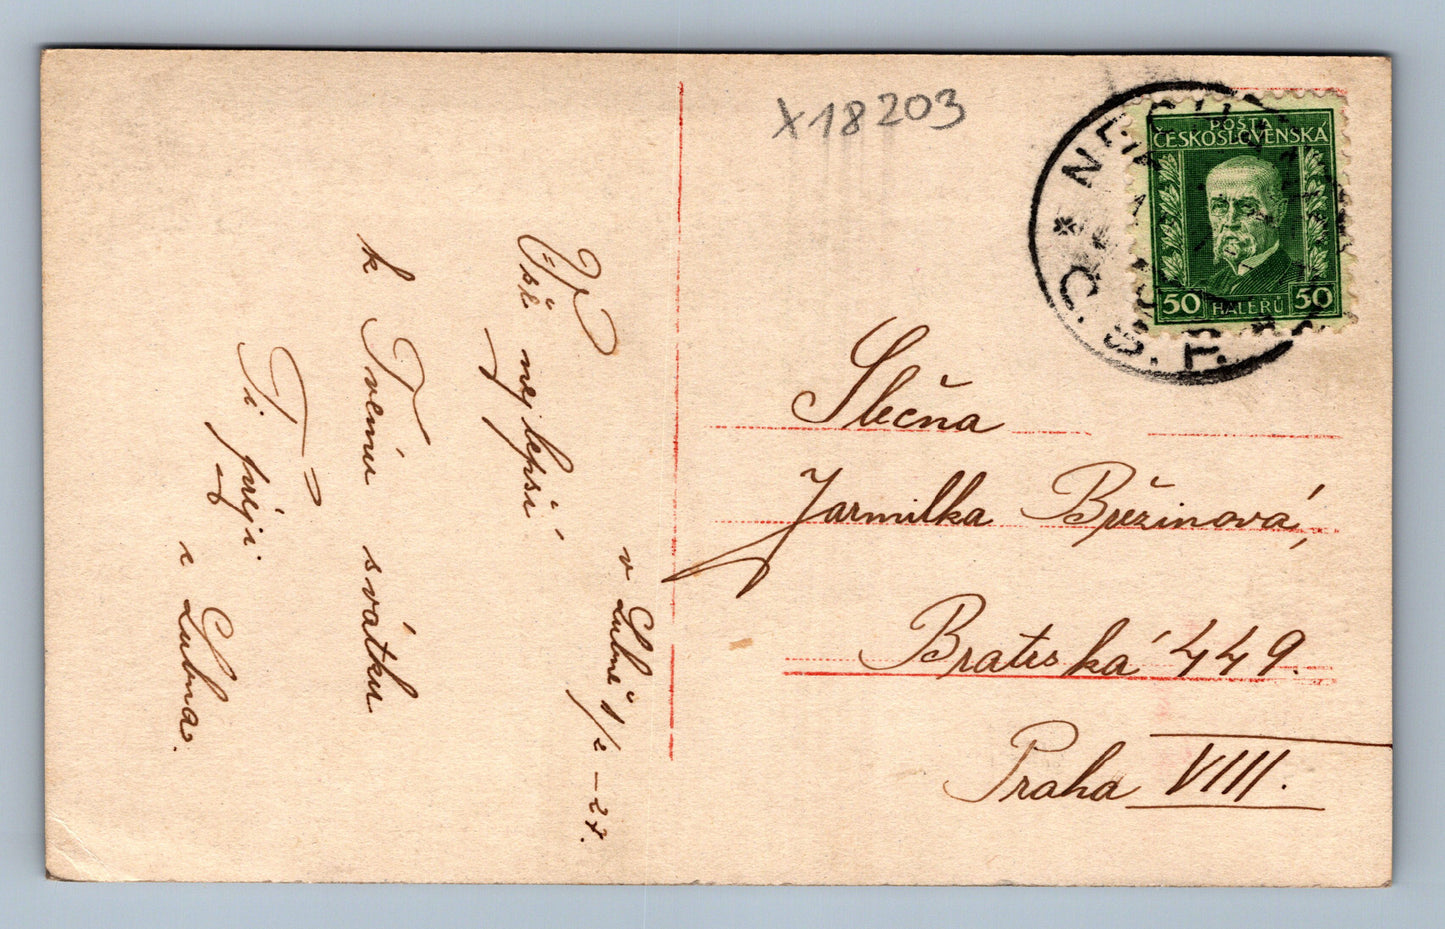 X18203
POŠTA
ČESKOSLOVENSKÁ
50 HALÉŘŮ 50
Č.S.P.
v Lubné 1/2 – 27.
Vše nejlepší
k Tvému svátku
Ti přeji
z Lubna.
Slečna
Jarmilka Březinová,
Bratrská 449.
Praha VIII.